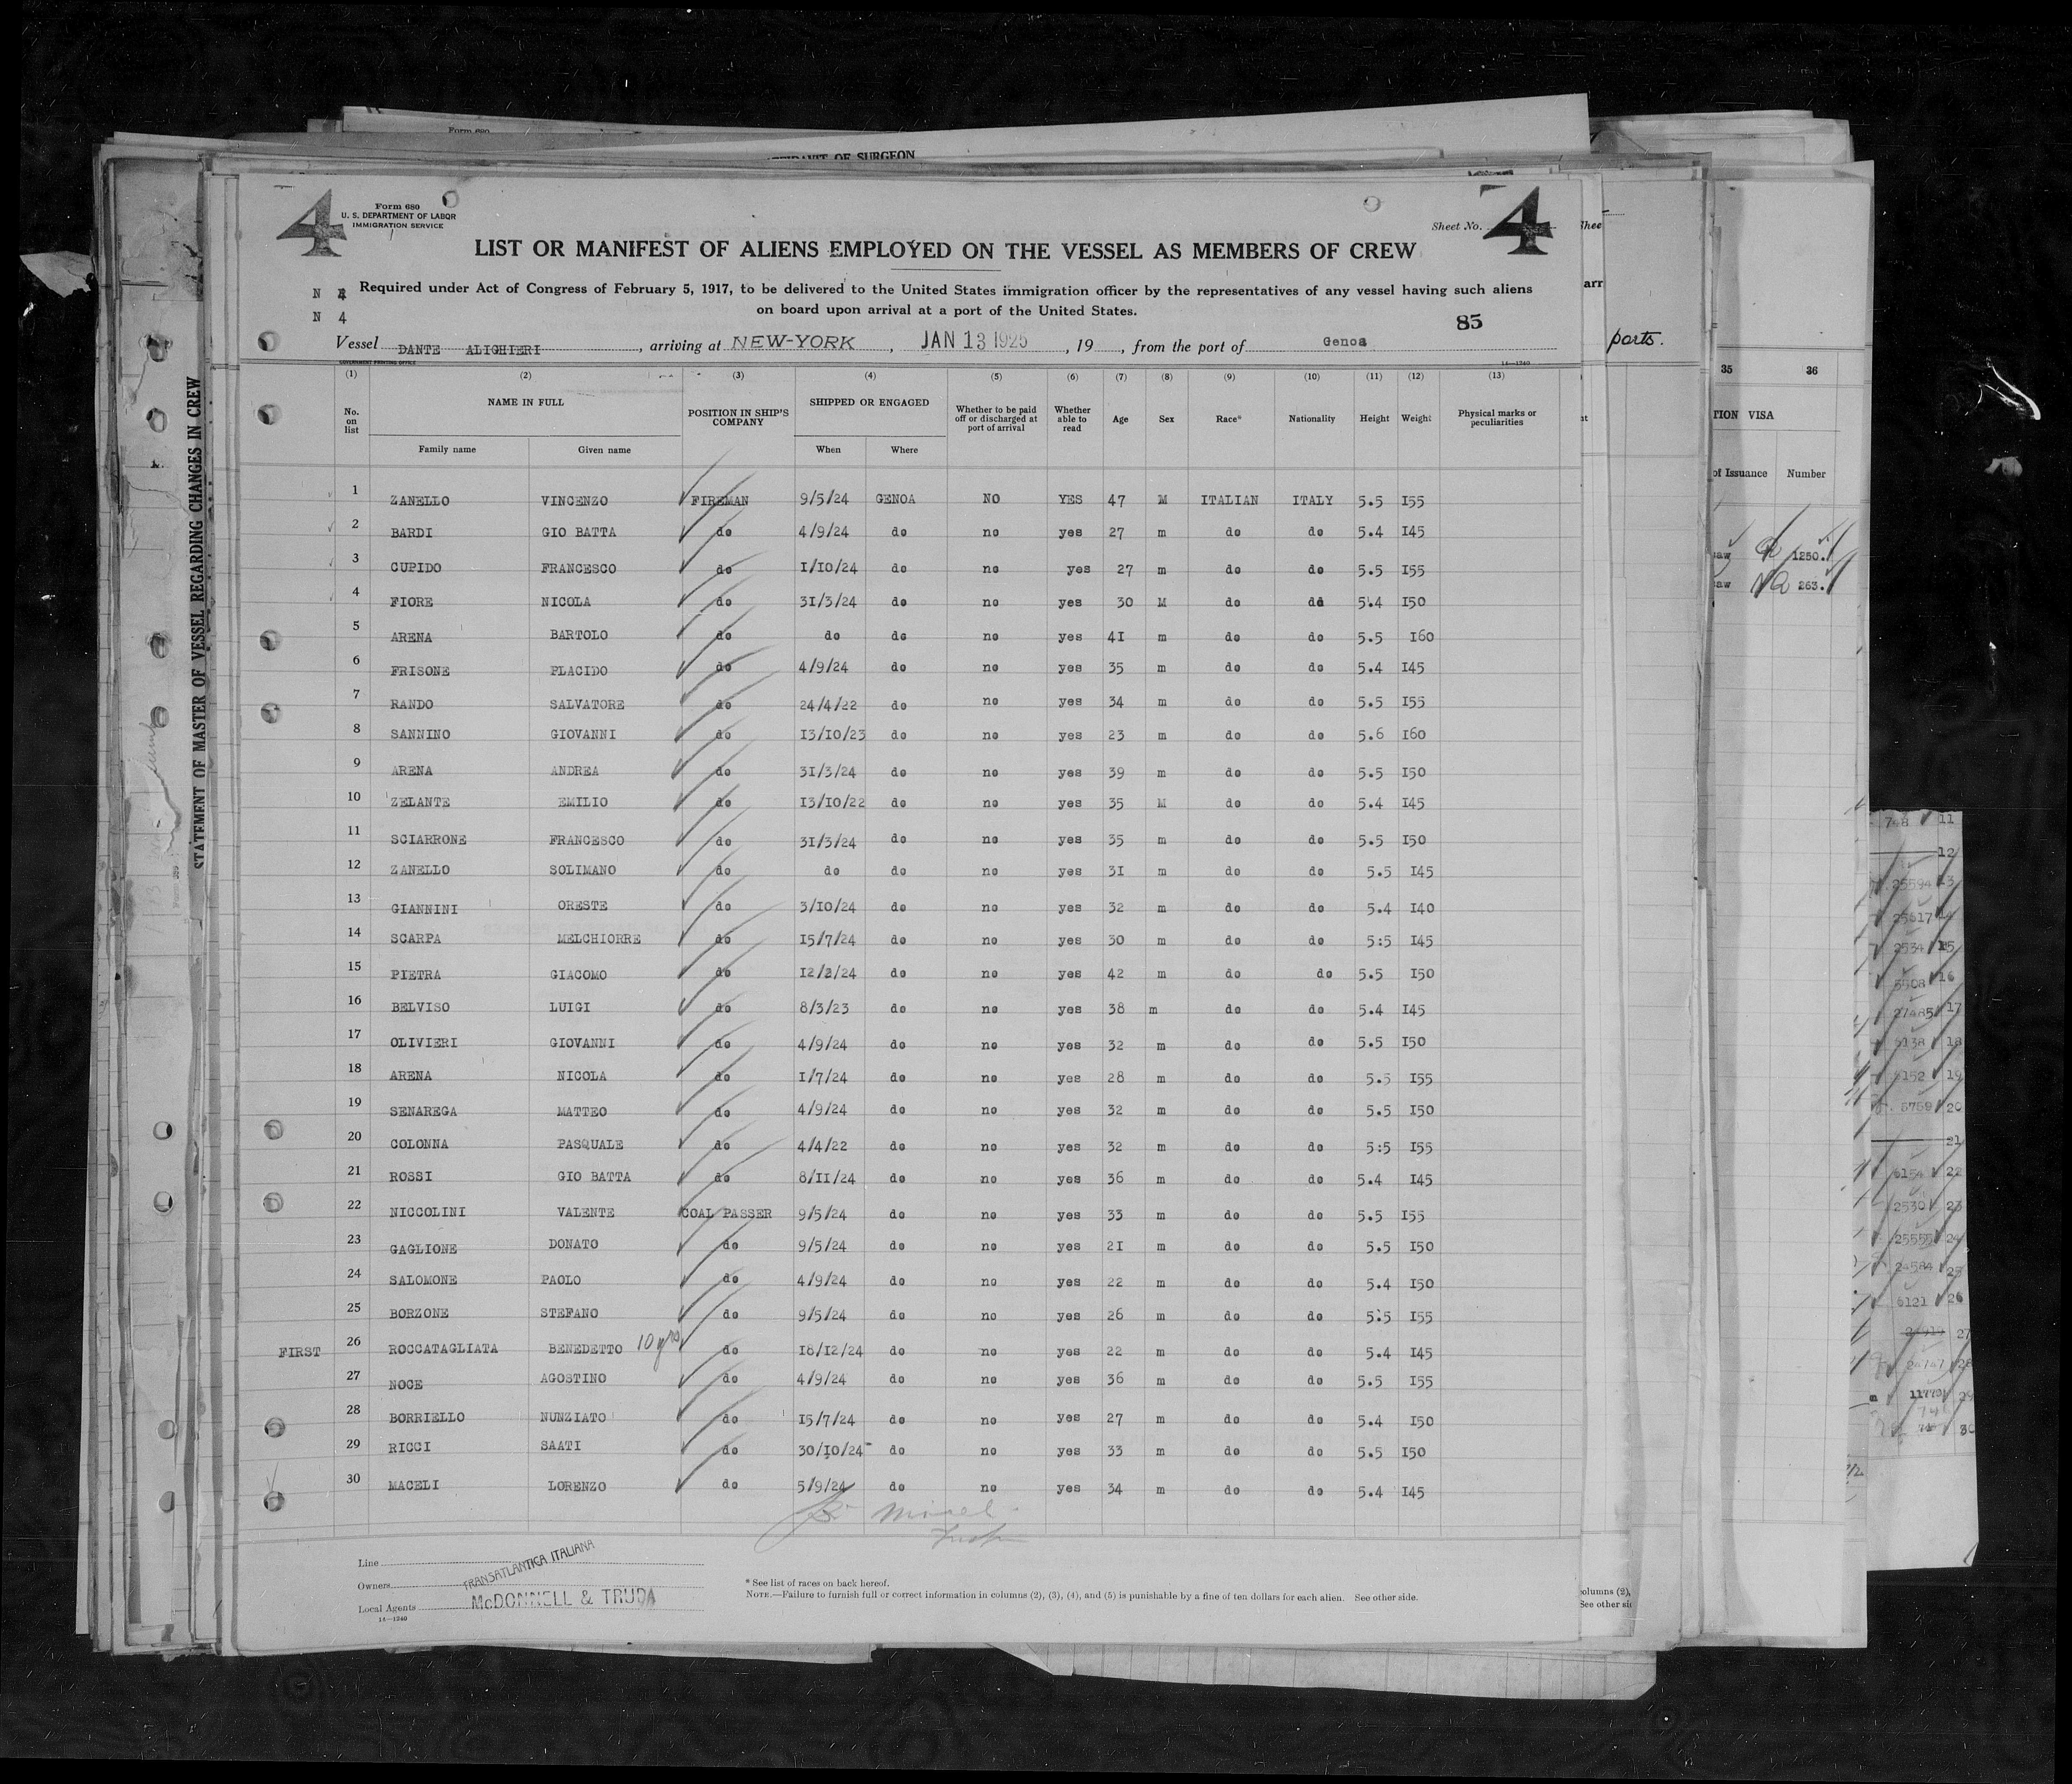 Form 680
AFFIDAVIT OF SURGEON
4
Form 680
U. S. DEPARTMENT OF LABOR
IMMIGRATION SERVICE
Sheet No. 4
LIST OR MANIFEST OF ALIENS EMPLOYED ON THE VESSEL AS MEMBERS OF CREW
N 4 Required under Act of Congress of February 5, 1917, to be delivered to the United States immigration officer by the representatives of any vessel having such aliens
N 4 on board upon arrival at a port of the United States.
85
Vessel DANTE ALIGHIERI, arriving at NEW-YORK, JAN 13 1925, 19, from the port of Genoa
GOVERNMENT PRINTING OFFICE 14—1240
(1) (2) (3) (4) (5) (6) (7) (8) (9) (10) (11) (12) (13)
No. on list NAME IN FULL POSITION IN SHIP'S COMPANY SHIPPED OR ENGAGED Whether to be paid off or discharged at port of arrival Whether able to read Age Sex Race* Nationality Height Weight Physical marks or peculiarities
Family name Given name When Where
1 ZANELLO VINCENZO FIREMAN 9/5/24 GENOA NO YES 47 M ITALIAN ITALY 5.5 I55
2 BARDI GIO BATTA do 4/9/24 do no yes 27 m do do 5.4 I45
3 CUPIDO FRANCESCO do I/IO/24 do no yes 27 m do do 5.5 I55
4 FIORE NICOLA do 3I/3/24 do no yes 30 M do do 5.4 I50
5 ARENA BARTOLO do do do no yes 4I m do do 5.5 I60
6 FRISONE PLACIDO do 4/9/24 do no yes 35 m do do 5.4 I45
7 RANDO SALVATORE do 24/4/22 do no yes 34 m do do 5.5 I55
8 SANNINO GIOVANNI do I3/IO/23 do no yes 23 m do do 5.6 I60
9 ARENA ANDREA do 3I/3/24 do no yes 39 m do do 5.5 I50
10 ZELANTE EMILIO do I3/IO/22 do no yes 35 M do do 5.4 I45
11 SCIARRONE FRANCESCO do 3I/3/24 do no yes 35 m do do 5.5 I50
12 ZANELLO SOLIMANO do do do no yes 3I m do do 5.5 I45
13 GIANNINI ORESTE do 3/IO/24 do no yes 32 m do do 5.4 I40
14 SCARPA MELCHIORRE do I5/7/24 do no yes 30 m do do 5:5 I45
15 PIETRA GIACOMO do I2/2/24 do no yes 42 m do do 5.5 I50
16 BELVISO LUIGI do 8/3/23 do no yes 38 m do do 5.4 I45
17 OLIVIERI GIOVANNI do 4/9/24 do no yes 32 m do do 5.5 I50
18 ARENA NICOLA do I/7/24 do no yes 28 m do do 5.5 I55
19 SENAREGA MATTEO do 4/9/24 do no yes 32 m do do 5.5 I50
20 COLONNA PASQUALE do 4/4/22 do no yes 32 m do do 5:5 I55
21 ROSSI GIO BATTA do 8/II/24 do no yes 36 m do do 5.4 I45
22 NICCOLINI VALENTE COAL PASSER 9/5/24 do no yes 33 m do do 5.5 I55
23 GAGLIONE DONATO do 9/5/24 do no yes 2I m do do 5.5 I50
24 SALOMONE PAOLO do 4/9/24 do no yes 22 m do do 5.4 I50
25 BORZONE STEFANO do 9/5/24 do no yes 26 m do do 5:5 I55
FIRST 26 ROCCATAGLIATA BENEDETTO 10 yrs do I8/I2/24 do no yes 22 m do do 5.4 I45
27 NOCE AGOSTINO do 4/9/24 do no yes 36 m do do 5.5 I55
28 BORRIELLO NUNZIATO do I5/7/24 do no yes 27 m do do 5.4 I50
29 RICCI SAATI do 30/IO/24 do no yes 33 m do do 5.5 I50
30 MACELI LORENZO do 5/9/24 do no yes 34 m do do 5.4 I45
Line
Owners TRANSATLANTICA ITALIANA
Local Agents McDONNELL & TRUDA
14—1240
* See list of races on back hereof.
NOTE.—Failure to furnish full or correct information in columns (2), (3), (4), and (5) is punishable by a fine of ten dollars for each alien. See other side.
STATEMENT OF MASTER OF VESSEL REGARDING CHANGES IN CREW
Shee
arr
ports.
columns (2),
See other si
35 36
TION VISA
of Issuance Number
saw 1250.
saw 263.
748 11
12
25594 13
25517 14
2534 15
5508 16
27485 17
6138 18
6152 19
5759 20
21
6154 22
2530 23
25555 24
24584 25
6121 26
27
24747 28
29
30